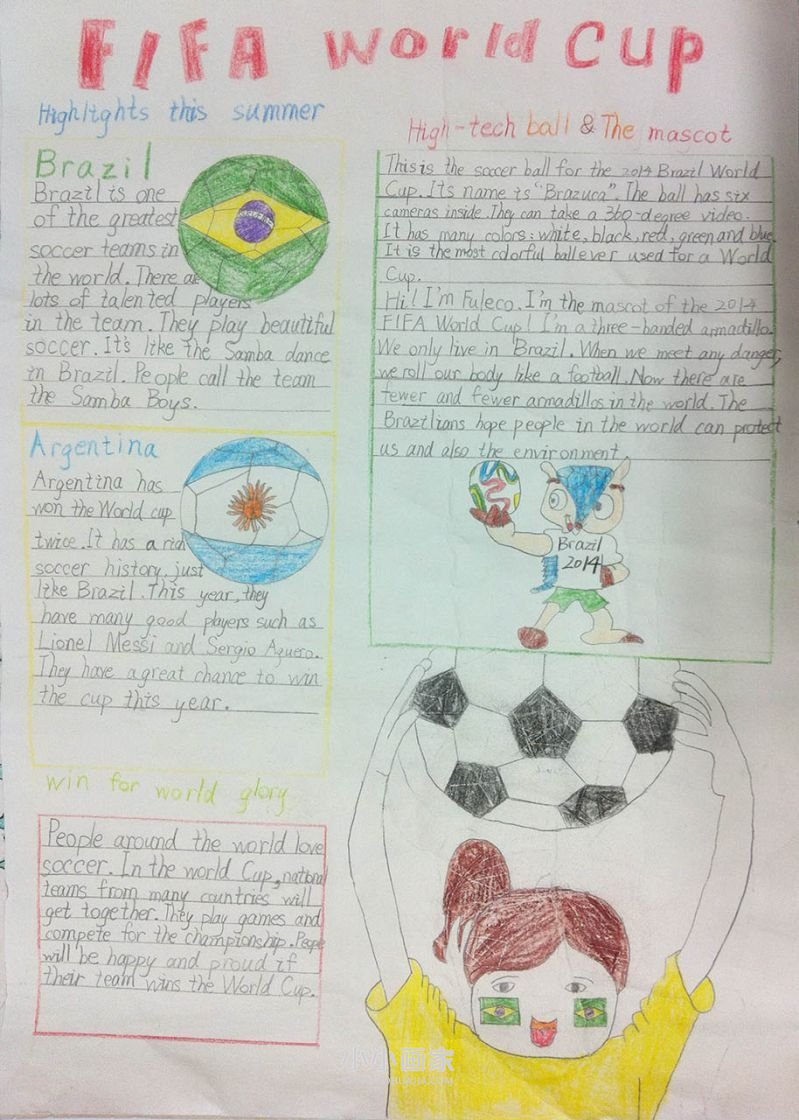 FIFA World Cup
Highlights this summer
Brazil
Brazil is one
of the greatest
soccer teams in
the world. There are
lots of talented players
in the team. They play beautiful
soccer. It's like the Samba dance
in Brazil. People call the team
the Samba Boys.
Argentina
Argentina has
won the World cup
twice. It has a rich
soccer history, just
like Brazil. This year, they
have many good players such as
Lionel Messi and Sergio Aguero.
They have a great chance to win
the cup this year.
win for world glory
People around the world love
soccer. In the world Cup, national
teams from many countries will
get together. They play games and
compete for the championship. People
will be happy and proud if
their team wins the World Cup.
High-tech ball & The mascot
This is the soccer ball for the 2014 Brazil World
Cup. It's name is "Brazuca". The ball has six
cameras inside. They can take a 360-degree video.
It has many colors: white, black, red, green and blue.
It is the most colorful ball ever used for a World
Cup.
Hi! I'm Fuleco. I'm the mascot of the 2014
FIFA World Cup! I'm a three-banded armadillo.
We only live in Brazil. When we meet any danger,
we roll our body like a football. Now there are
fewer and fewer armadillos in the world. The
Brazilians hope people in the world can protect
us and also the environment.
Brazil
2014